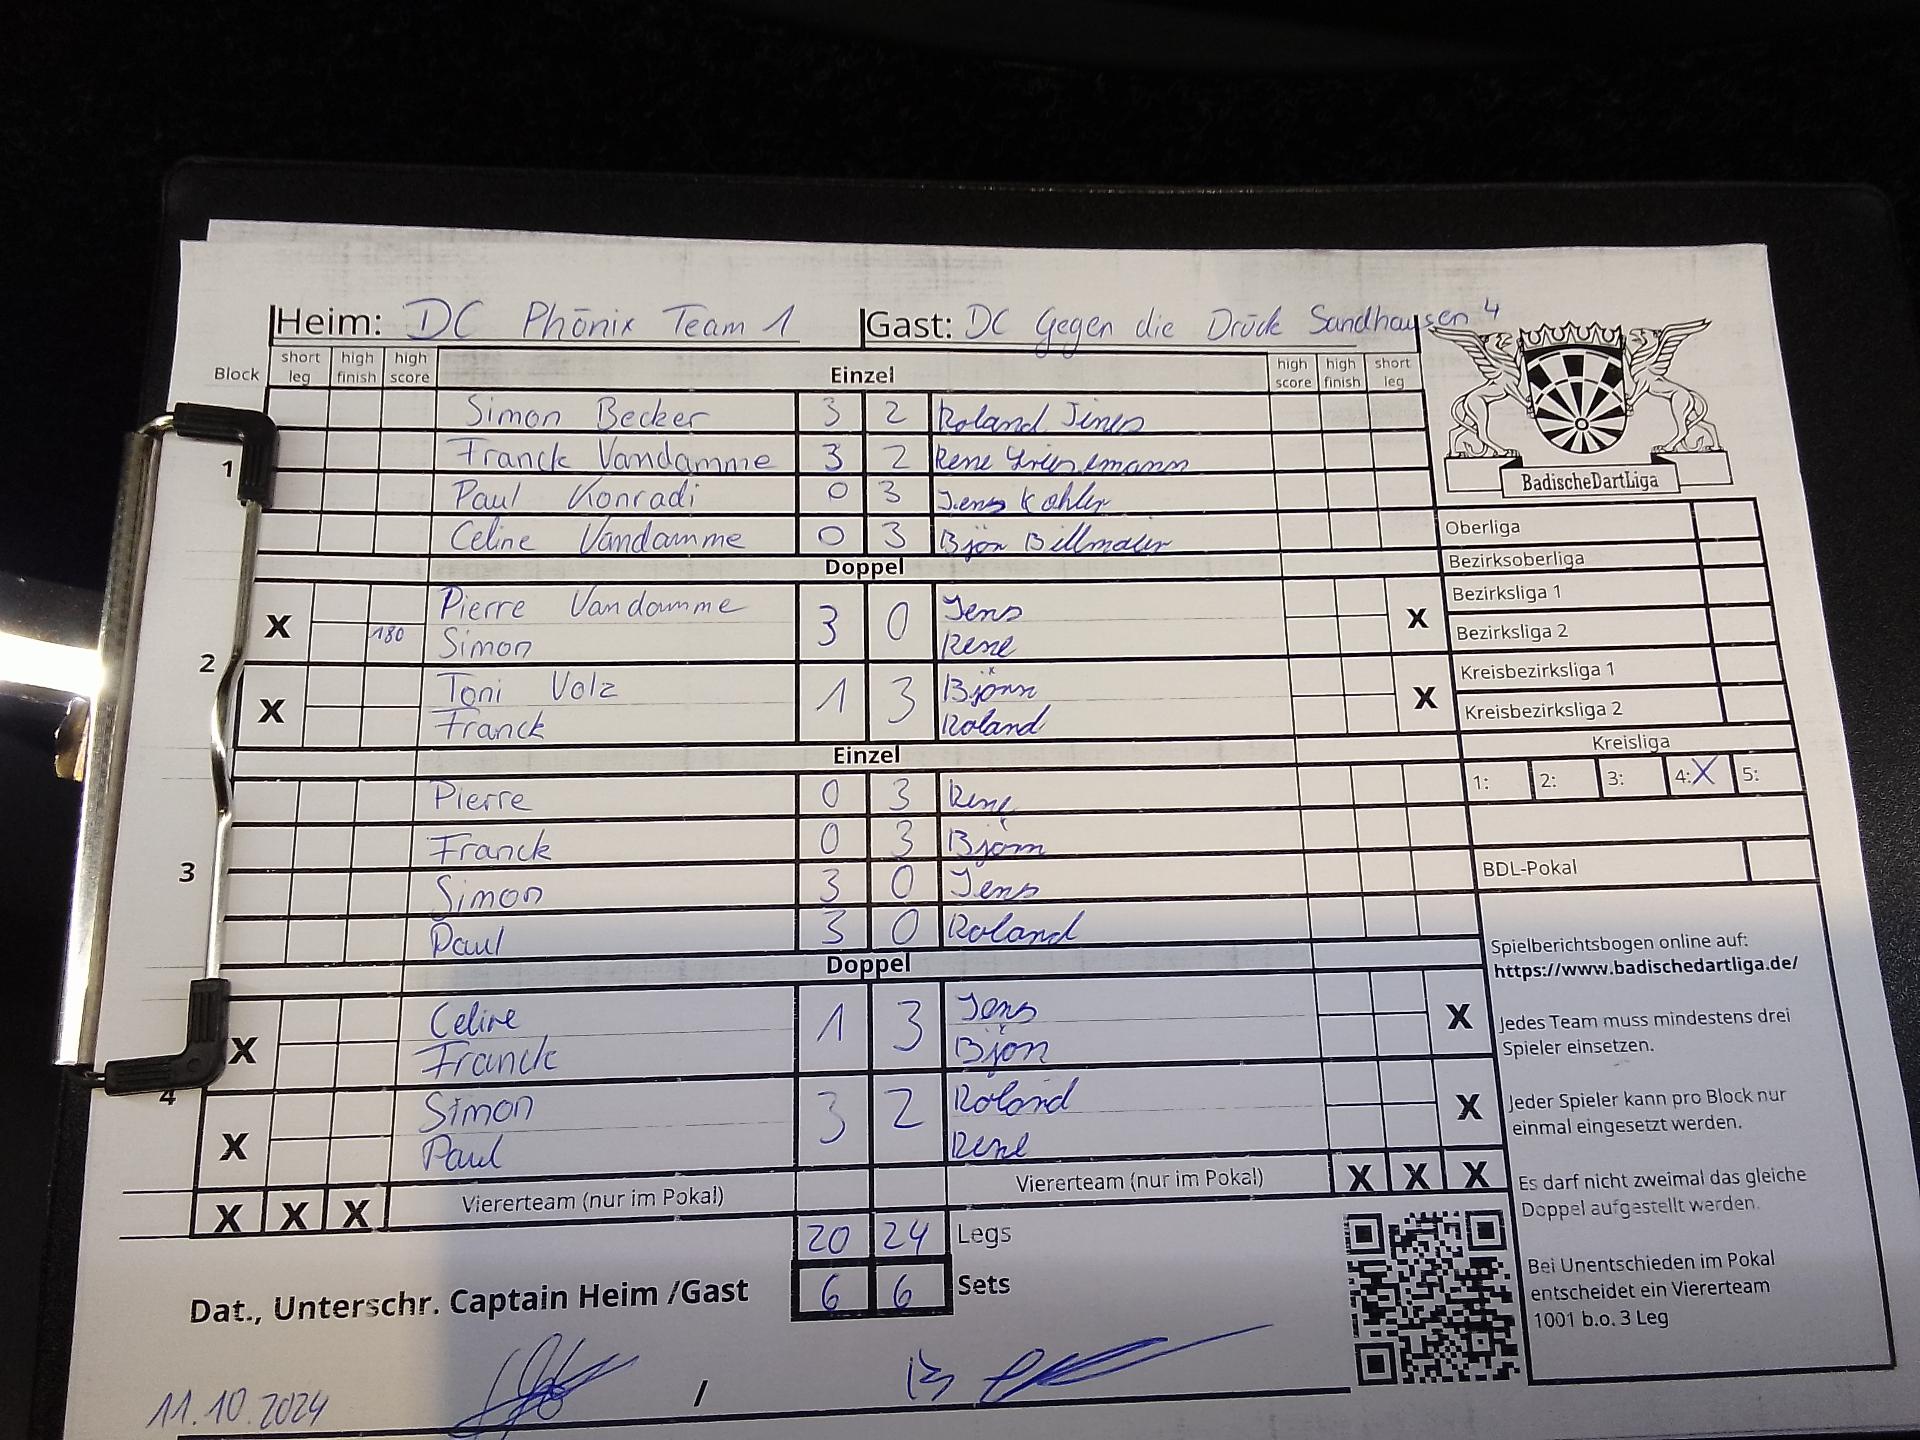 Heim: DC Phönix Team 1 Gast: DC Gegen die Drück Sandhausen 4
Block short leg high finish high score Einzel high score high finish short leg
Simon Becker 3 2 Roland Jines
1 Franck Vandamme 3 2 Rene
Paul Konradi 0 3 Jens Kohler
Celine Vandamme 0 3 Björn Billmaier
Doppel
X Pierre Vandamme 3 0 Jens X
180 Simon Rene
2
X Toni Volz 1 3 Björn X
Franck Roland
Einzel
Pierre 0 3 Rene
Franck 0 3 Björn
3 Simon 3 0 Jens
Paul 3 0 Roland
Doppel
X Celine 1 3 Jens X
Franck Björn
4
X Simon 3 2 Roland X
Paul Rene
X X X Viererteam (nur im Pokal) Viererteam (nur im Pokal) X X X
20 24 Legs
6 6 Sets
Dat., Unterschr. Captain Heim /Gast
11.10.2024 /
BadischeDartLiga
Oberliga
Bezirksoberliga
Bezirksliga 1
Bezirksliga 2
Kreisbezirksliga 1
Kreisbezirksliga 2
Kreisliga
1: 2: 3: 4: X 5:
BDL-Pokal
Spielberichtsbogen online auf:
https://www.badischedartliga.de/
Jedes Team muss mindestens drei
Spieler einsetzen.
Jeder Spieler kann pro Block nur
einmal eingesetzt werden.
Es darf nicht zweimal das gleiche
Doppel aufgestellt werden.
Bei Unentschieden im Pokal
entscheidet ein Viererteam
1001 b.o. 3 Leg